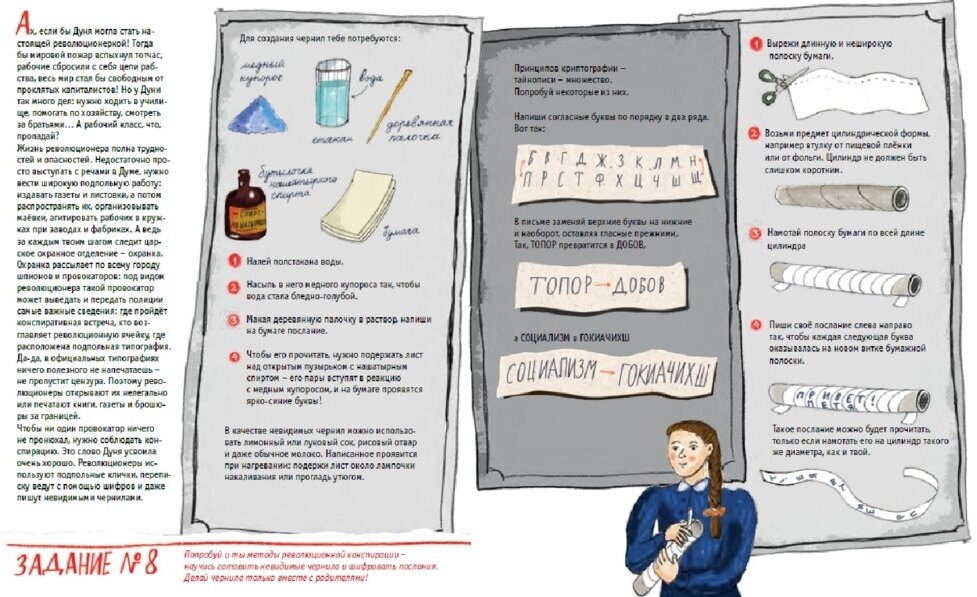 Ах, если бы Дуня могла стать на-
стоящей революционеркой! Тогда
бы мировой пожар вспыхнул тотчас,
рабочие сбросили с себя цепи раб-
ства, весь мир стал бы свободным от
проклятых капиталистов! Но у Дуни
так много дел: нужно ходить в учили-
ще, помогать по хозяйству, смотреть
за братьями... А рабочий класс, что,
пропадай?
Жизнь революционера полна трудно-
стей и опасностей. Недостаточно про-
сто выступать с речами в Думе, нужно
вести широкую подпольную работу:
издавать газеты и листовки, а потом
распространять их, организовывать
маёвки, агитировать рабочих в круж-
ках при заводах и фабриках. А ведь
за каждым твоим шагом следит цар-
ское охранное отделение – охранка.
Охранка рассылает по всему городу
шпионов и провокаторов: под видом
революционера такой провокатор
может выведать и передать полиции
самые важные сведения: где пройдёт
конспиративная встреча, кто воз-
главляет революционную ячейку, где
расположена подпольная типография.
Да-да, в официальных типографиях
ничего полезного не напечатаешь –
не пропустит цензура. Поэтому рево-
люционеры открывают их нелегально
или печатают книги, газеты и брошю-
ры за границей.
Чтобы ни один провокатор ничего
не пронюхал, нужно соблюдать кон-
спирацию. Это слово Дуня усвоила
очень хорошо. Революционеры ис-
пользуют подпольные клички, перепи-
ску ведут с помощью шифров и даже
пишут невидимыми чернилами.
ЗАДАНИЕ № 8
Попробуй и ты методы революционной конспирации –
научись готовить невидимые чернила и шифровать послания.
Делай чернила только вместе с родителями!
Для создания чернил тебе потребуются:
медный
купорос
вода
стакан
деревянная
палочка
бутылочка
нашатырного
спирта
СПИРТ
НАШАТЫРНЫЙ
бумага
1 Налей полстакана воды.
2 Насыпь в него медного купороса так, чтобы
вода стала бледно-голубой.
3 Макая деревянную палочку в раствор, напиши
на бумаге послание.
4 Чтобы его прочитать, нужно подержать лист
над открытым пузырьком с нашатырным
спиртом – его пары вступят в реакцию
с медным купоросом, и на бумаге проявятся
ярко-синие буквы!
В качестве невидимых чернил можно использо-
вать лимонный или луковый сок, рисовый отвар
и даже обычное молоко. Написанное проявится
при нагревании: подержи лист около лампочки
накаливания или прогладь утюгом.
Принципов криптографии –
тайнописи – множество.
Попробуй некоторые из них.
Напиши согласные буквы по порядку в два ряда.
Вот так:
Б В Г Д Ж З К Л М Н
П Р С Т Ф Х Ц Ч Ш Щ
В письме заменяй верхние буквы на нижние
и наоборот, оставляя гласные прежними.
Так, ТОПОР превратится в ДОБОВ,
ТОПОР → ДОБОВ
а СОЦИАЛИЗМ в ГОКИАЧИХШ
СОЦИАЛИЗМ → ГОКИАЧИХШ
1 Вырежи длинную и неширокую
полоску бумаги.
2 Возьми предмет цилиндрической формы,
например втулку от пищевой плёнки
или от фольги. Цилиндр не должен быть
слишком коротким.
3 Намотай полоску бумаги по всей длине
цилиндра
4 Пиши своё послание слева направо
так, чтобы каждая следующая буква
оказывалась на новом витке бумажной
полоски.
ПРИВЕТ!
Такое послание можно будет прочитать,
только если намотать его на цилиндр такого
же диаметра, как и твой.